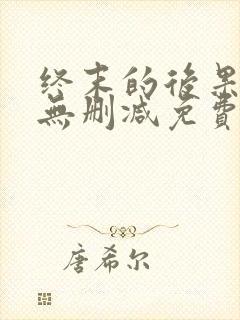 终末的後果
無删减免費
唐希尔